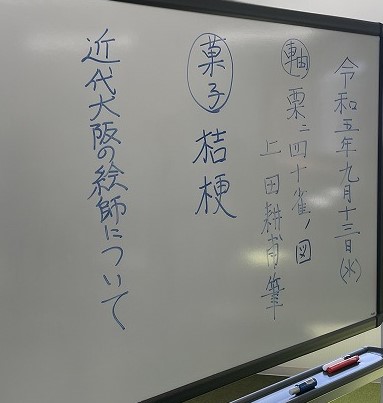 令和五年九月十三日(水)
軸 栗ニ四十雀ノ図
上田耕甫筆
菓子 桔梗
近代大阪の絵師について